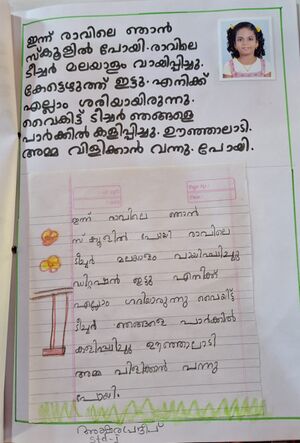 ഇന്ന് രാവിലെ ഞാൻ
സ്കൂളിൽ പോയി. രാവിലെ
ടീച്ചർ മലയാളം വായിപ്പിച്ചു.
കേട്ടെഴുത്ത് ഇട്ടു. എനിക്ക്
എല്ലാം ശരിയായിരുന്നു.
വൈകിട്ട് ടീച്ചർ ഞങ്ങളെ
പാർക്കിൽ കളിപ്പിച്ചു. ഊഞ്ഞാലാടി.
അമ്മ വിളിക്കാൻ വന്നു. പോയി.
ഇന്ന് രാവിലെ ഞാൻ
സ്കൂളിൽ പോയി രാവിലെ
ടീച്ചർ മലയാളം
ഡിറ്റഷൻ ഇട്ടു എനിക്ക്
എല്ലാം ശരിയാരുന്നു വൈകീട്ട്
ടീച്ചർ ഞങ്ങളെ പാർക്കിൽ
കളിപ്പിച്ചു ഊഞ്ഞാലാടി
അമ്മ വിളിക്കാൻ വന്നു
പോയി.
Std-1